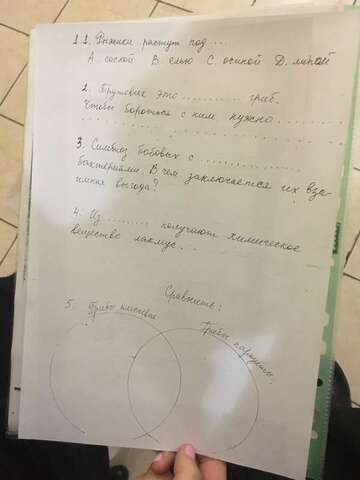 1 1. Рыжики растут под ....
А. сосной В. елью С. осиной Д. липой
2. Трутовик это .......... гриб.
Чтобы бороться с ним нужно ........
3. Симбиоз бобовых с ..........
бактериями. В чем заключается их вза-
имная выгода?
4. Из ......... получают химическое
вещество лакмус.
Сравнить:
5. Грибы
Грибы паразиты.